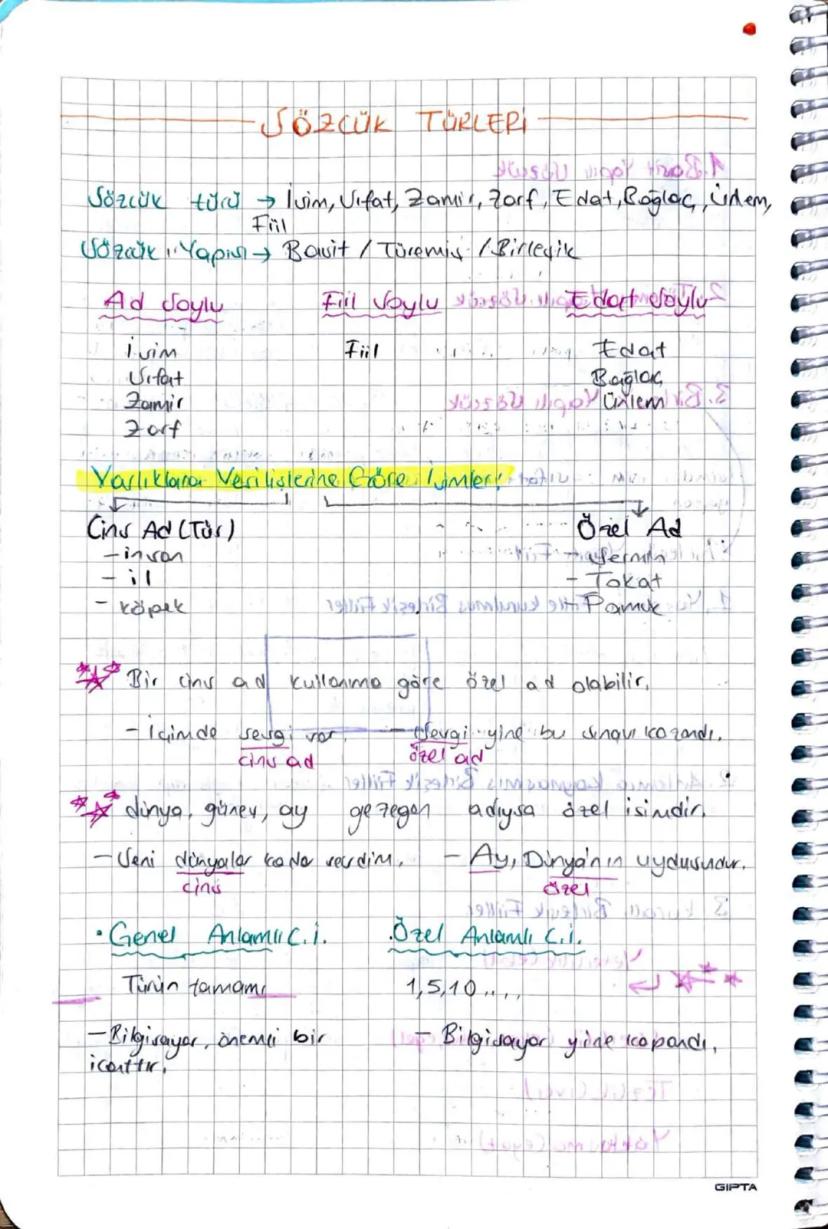 SÖZCÜK TÜRLERİ
Sözcük türü → İsim, Sıfat, Zamir, Zarf, Edat, Bağlaç, Ünlem,
Fiil
Sözcük Yapısı → Basit / Türemiş / Birleşik
Ad Soylu Fiil Soylu Edat Soylu
İsim Fiil Edat
Sıfat Bağlaç
Zamir Ünlem
Zarf
Varlıklara Verilişlerine Göre İsimler;
Cins Ad (Tür) Özel Ad
- insan
- il - Tokat
- köpek - Pamuk
Bir cins ad kullanıma göre özel ad olabilir.
- İçimde sevgi var. - Sevgi yine bu sınavı kazandı.
cins ad özel ad
dünya, güneş, ay gezegen adıysa özel isimdir.
- Seni dünyalar kadar sevdim. - Ay, Dünya'nın uydusudur.
cins özel
• Genel Anlamlı C.İ. . Özel Anlamlı C.İ.
Türün tamamı 1,5,10....
- Bilgisayar, önemli bir - Bilgisayar yine kapandı.
icattır.
GIPTA